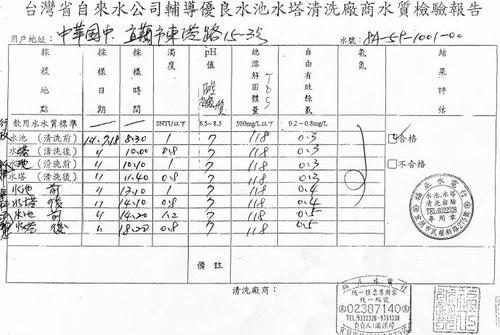 台灣省自來水公司輔導優良水池水塔清洗廠商水質檢驗報告
用戶地址: 中華國中 宜蘭市東港路15-3號 水號: 8A-59-1001-00
採樣地點 採樣日期 採樣時間 濁度 pH值 總溶解固體量 TDS 自由有效餘氯 氨氮 結果評估
飲用水水質標準 2NTU以下 6.5~8.5 500mg/L以下 0.2~0.8mg/L
水池 (清洗前) 8:30 1 7 118 0.3 合格
水塔 (清洗後) 〃 10:00 0.8 7 118 0.3
水池 (清洗前) 〃 10:10 1 7 118 0.3 不合格
水塔 (清洗後) 〃 11:40 0.8 7 118 0.3
水池 前 〃 13:10 1 7 118 0.4
水塔 後 〃 14:10 0.8 7 118 0.4
水池 前 〃 14:20 1.2 7 118 0.5
水塔 後 〃 18:20 0.8 7 118 0.5
備註
水池.水塔
清洗檢驗
TEL:9322328
專用章
清洗廠商:
統一發票專用章
統一編號
02387140
TEL:9322328·9751338